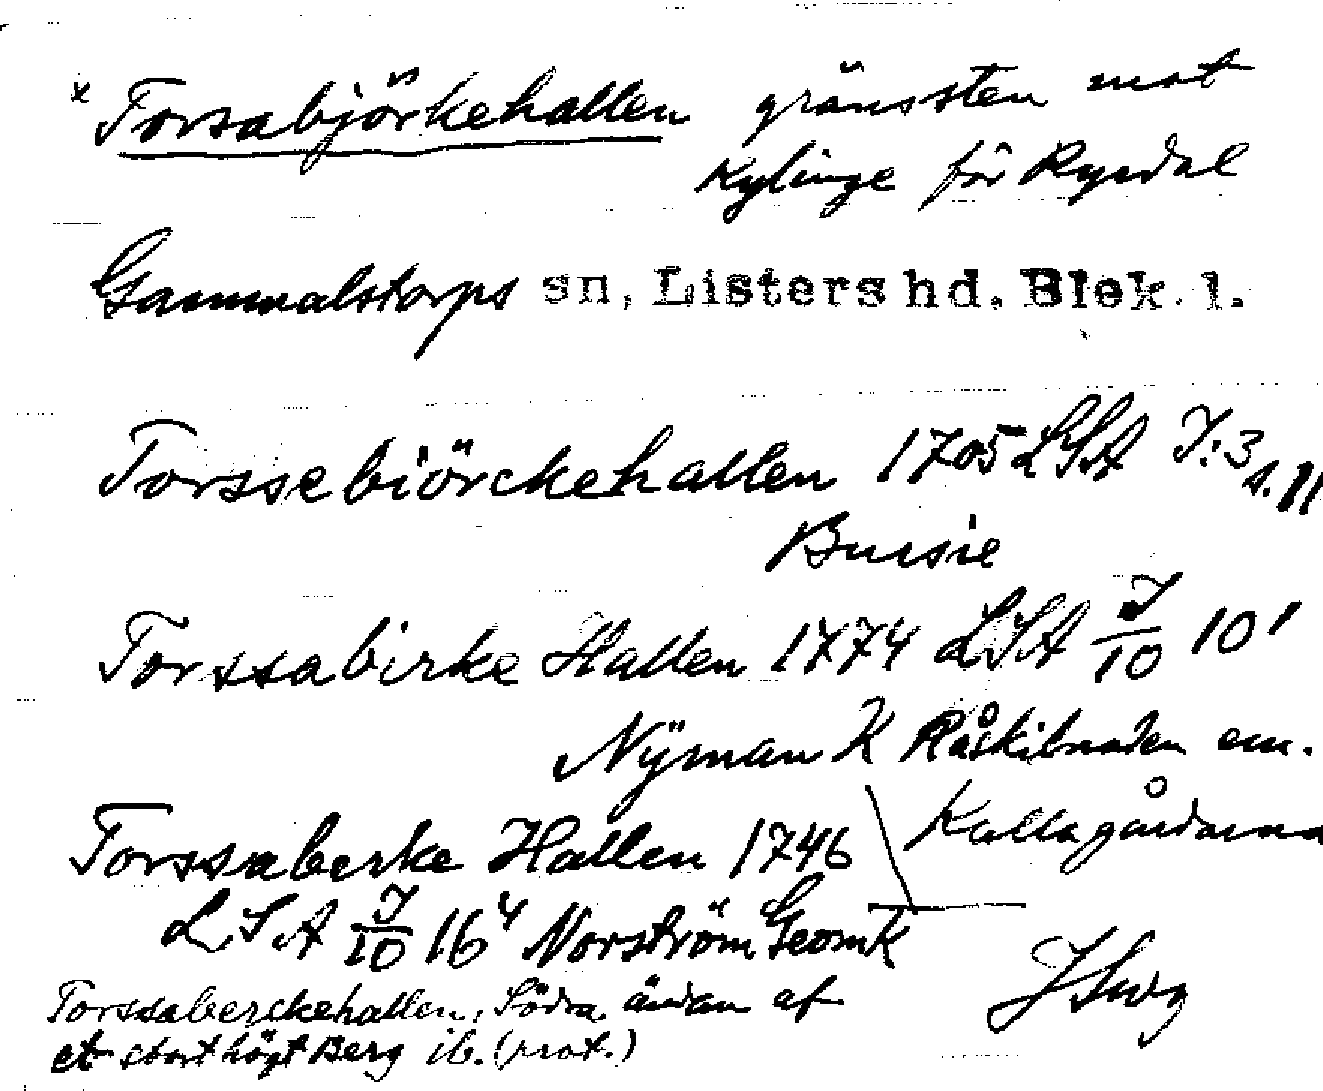 * Torsabjörkehallen gränssten mot
Kylinge för Rysdal
Gammalstorps sn, Listers hd. Blek. l.
Torssebiörckehallen 1705 LSA I:3
s. 11
Bursie
Torssabirke Hallen 1774 LSA I/10 10¹
Nÿman K Råskilnaden em.
Kallagårdarna
Torssaberke Hallen 1746
LSA I/10 16⁴ Norström GeomK
Torssaberckehallen, Södra ändan af
et stort högt Berg ib. (prot.)